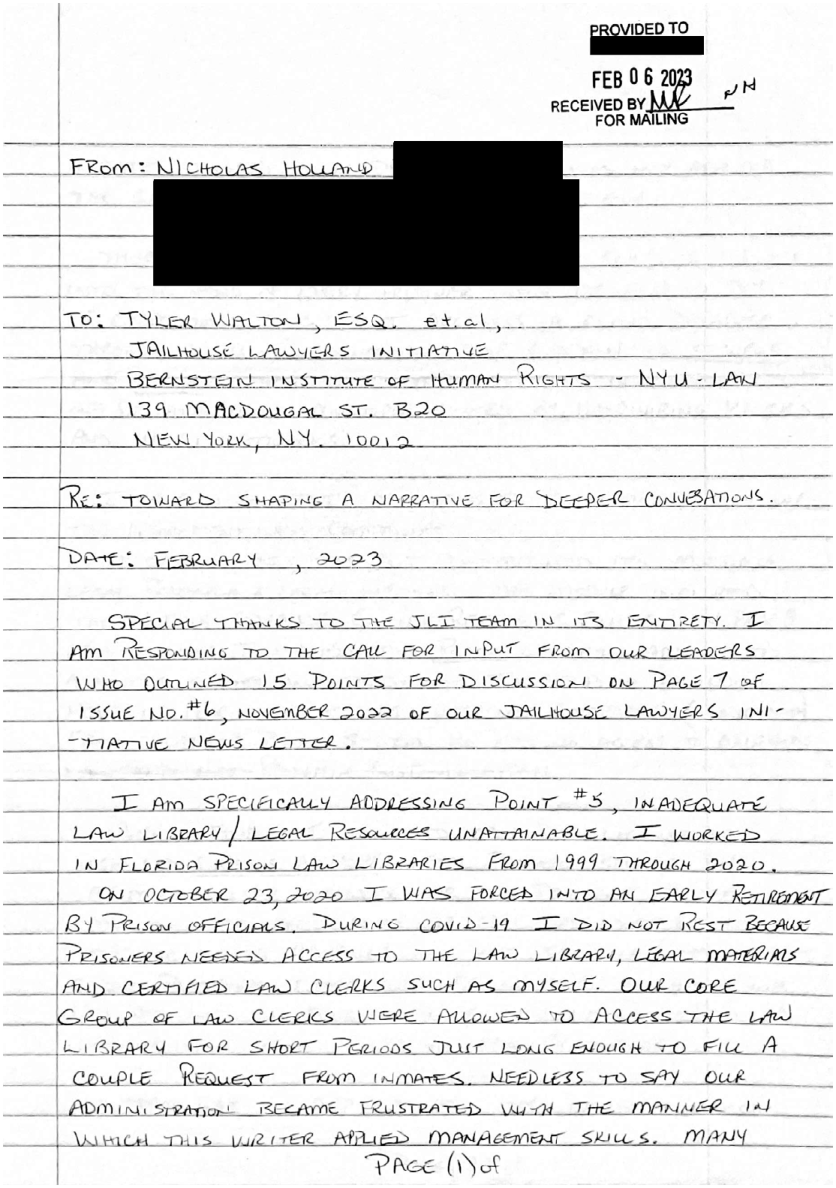 PROVIDED TO
FEB 06 2023
RECEIVED BY
NH
FOR MAILING
FROM: NICHOLAS HOLLAND
TO: TYLER WALTON, ESQ. et.al,
JAILHOUSE LAWYERS INITIATIVE
BERNSTEIN INSTITUTE OF HUMAN RIGHTS - NYU-LAW
139 MACDOUGAL ST. B20
NEW YORK, NY. 10012
RE: TOWARD SHAPING A NARRATIVE FOR DEEPER CONVESATIONS.
DATE: FEBRUARY , 2023
SPECIAL THANKS TO THE JLI TEAM IN ITS ENTIRETY. I
AM RESPONDING TO THE CALL FOR INPUT FROM OUR LEADERS
WHO OUTLINED 15 POINTS FOR DISCUSSION ON PAGE 7 OF
ISSUE NO. #6, NOVEMBER 2022 OF OUR JAILHOUSE LAWYERS INI-
-TIATIVE NEWS LETTER.
I AM SPECIFICALLY ADDRESSING POINT #5, INADEQUATE
LAW LIBRARY/LEGAL RESOURCES UNATTAINABLE. I WORKED
IN FLORIDA PRISON LAW LIBRARIES FROM 1999 THROUGH 2020.
ON OCTOBER 23, 2020 I WAS FORCED INTO AN EARLY RETIREMENT
BY PRISON OFFICIALS. DURING COVID-19 I DID NOT REST BECAUSE
PRISONERS NEEDED ACCESS TO THE LAW LIBRARY, LEGAL MATERIALS
AND CERTIFIED LAW CLERKS SUCH AS MYSELF. OUR CORE
GROUP OF LAW CLERKS WERE ALLOWED TO ACCESS THE LAW
LIBRARY FOR SHORT PERIODS JUST LONG ENOUGH TO FILL A
COUPLE REQUEST FROM INMATES. NEEDLESS TO SAY OUR
ADMINISTRATION BECAME FRUSTRATED WITH THE MANNER IN
WHICH THIS WRITER APPLIED MANAGEMENT SKILLS. MANY
PAGE (1) of